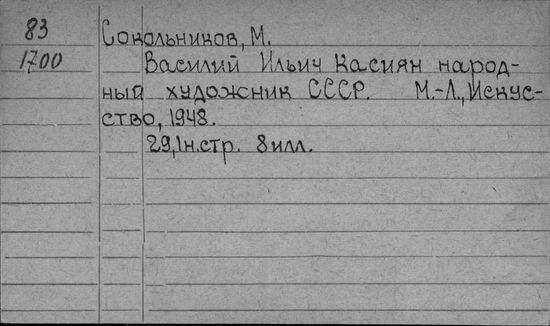 83 Сокольников, М.
1700 Василий Ильич Касиян народ-
ный художник СССР. М.-Л., Искус-
ство, 1948.
29,1н.стр. 8илл.